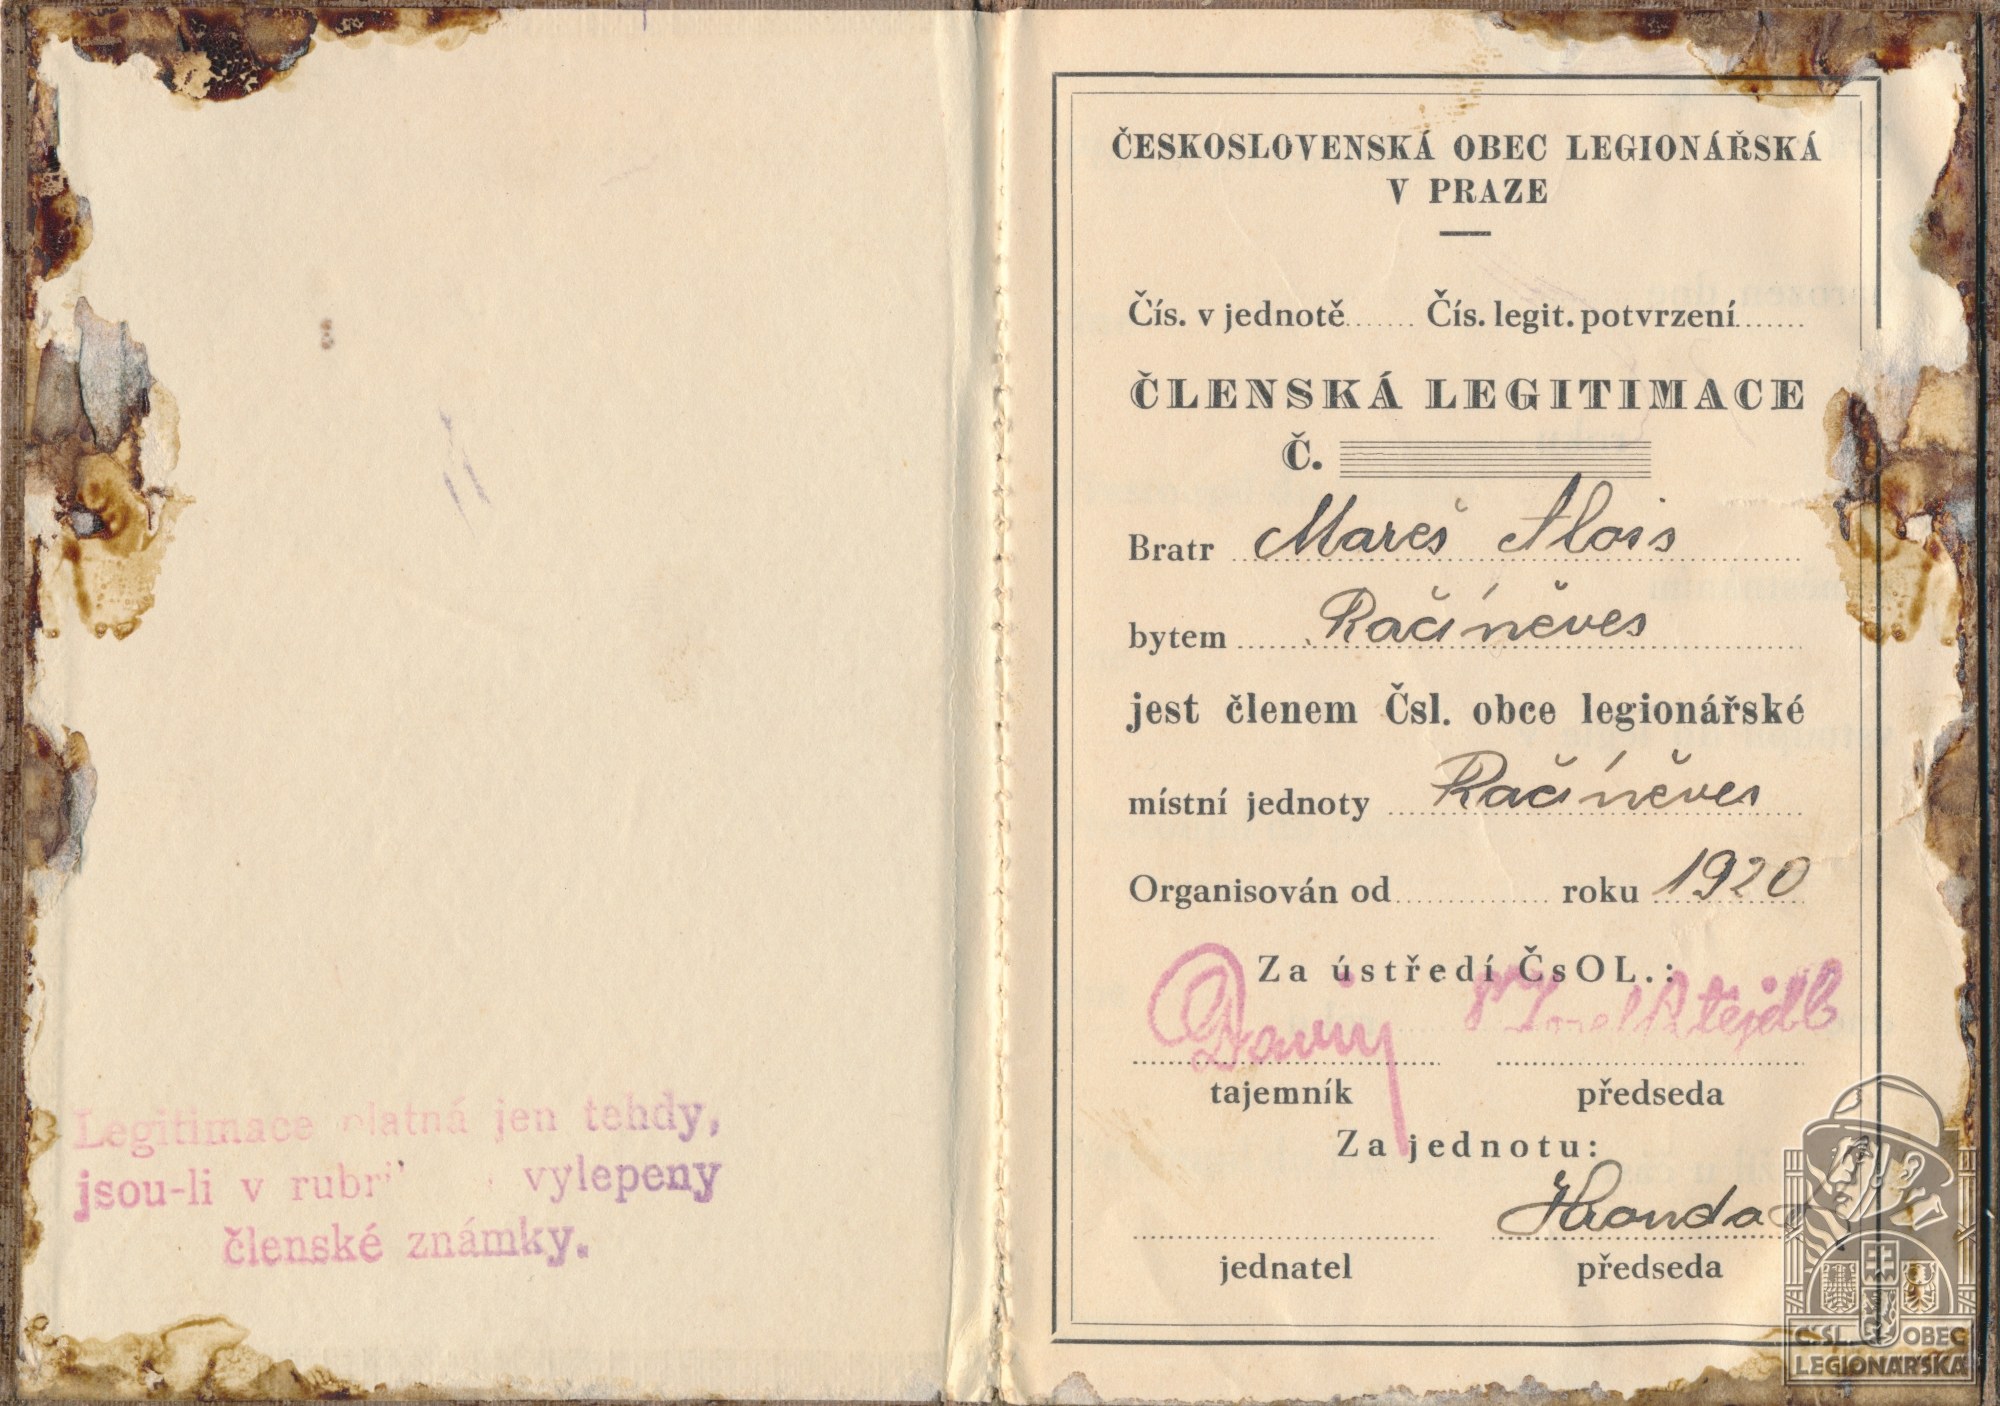 Legitimace platná jen tehdy,
jsou-li v vylepeny
členské známky.
ČESKOSLOVENSKÁ OBEC LEGIONÁŘSKÁ
V PRAZE
Čís. v jednotě....... Čís. legit. potvrzení.......
ČLENSKÁ LEGITIMACE
Č.
Bratr Mareš Alois
bytem Račíněves
jest členem Čsl. obce legionářské
místní jednoty Račíněves
Organisován od............... roku 1920
Za ústředí ČsOL.:
tajemník předseda
Za jednotu:
jednatel předseda
ČSL. OBEC
LEGIONÁŘSKÁ